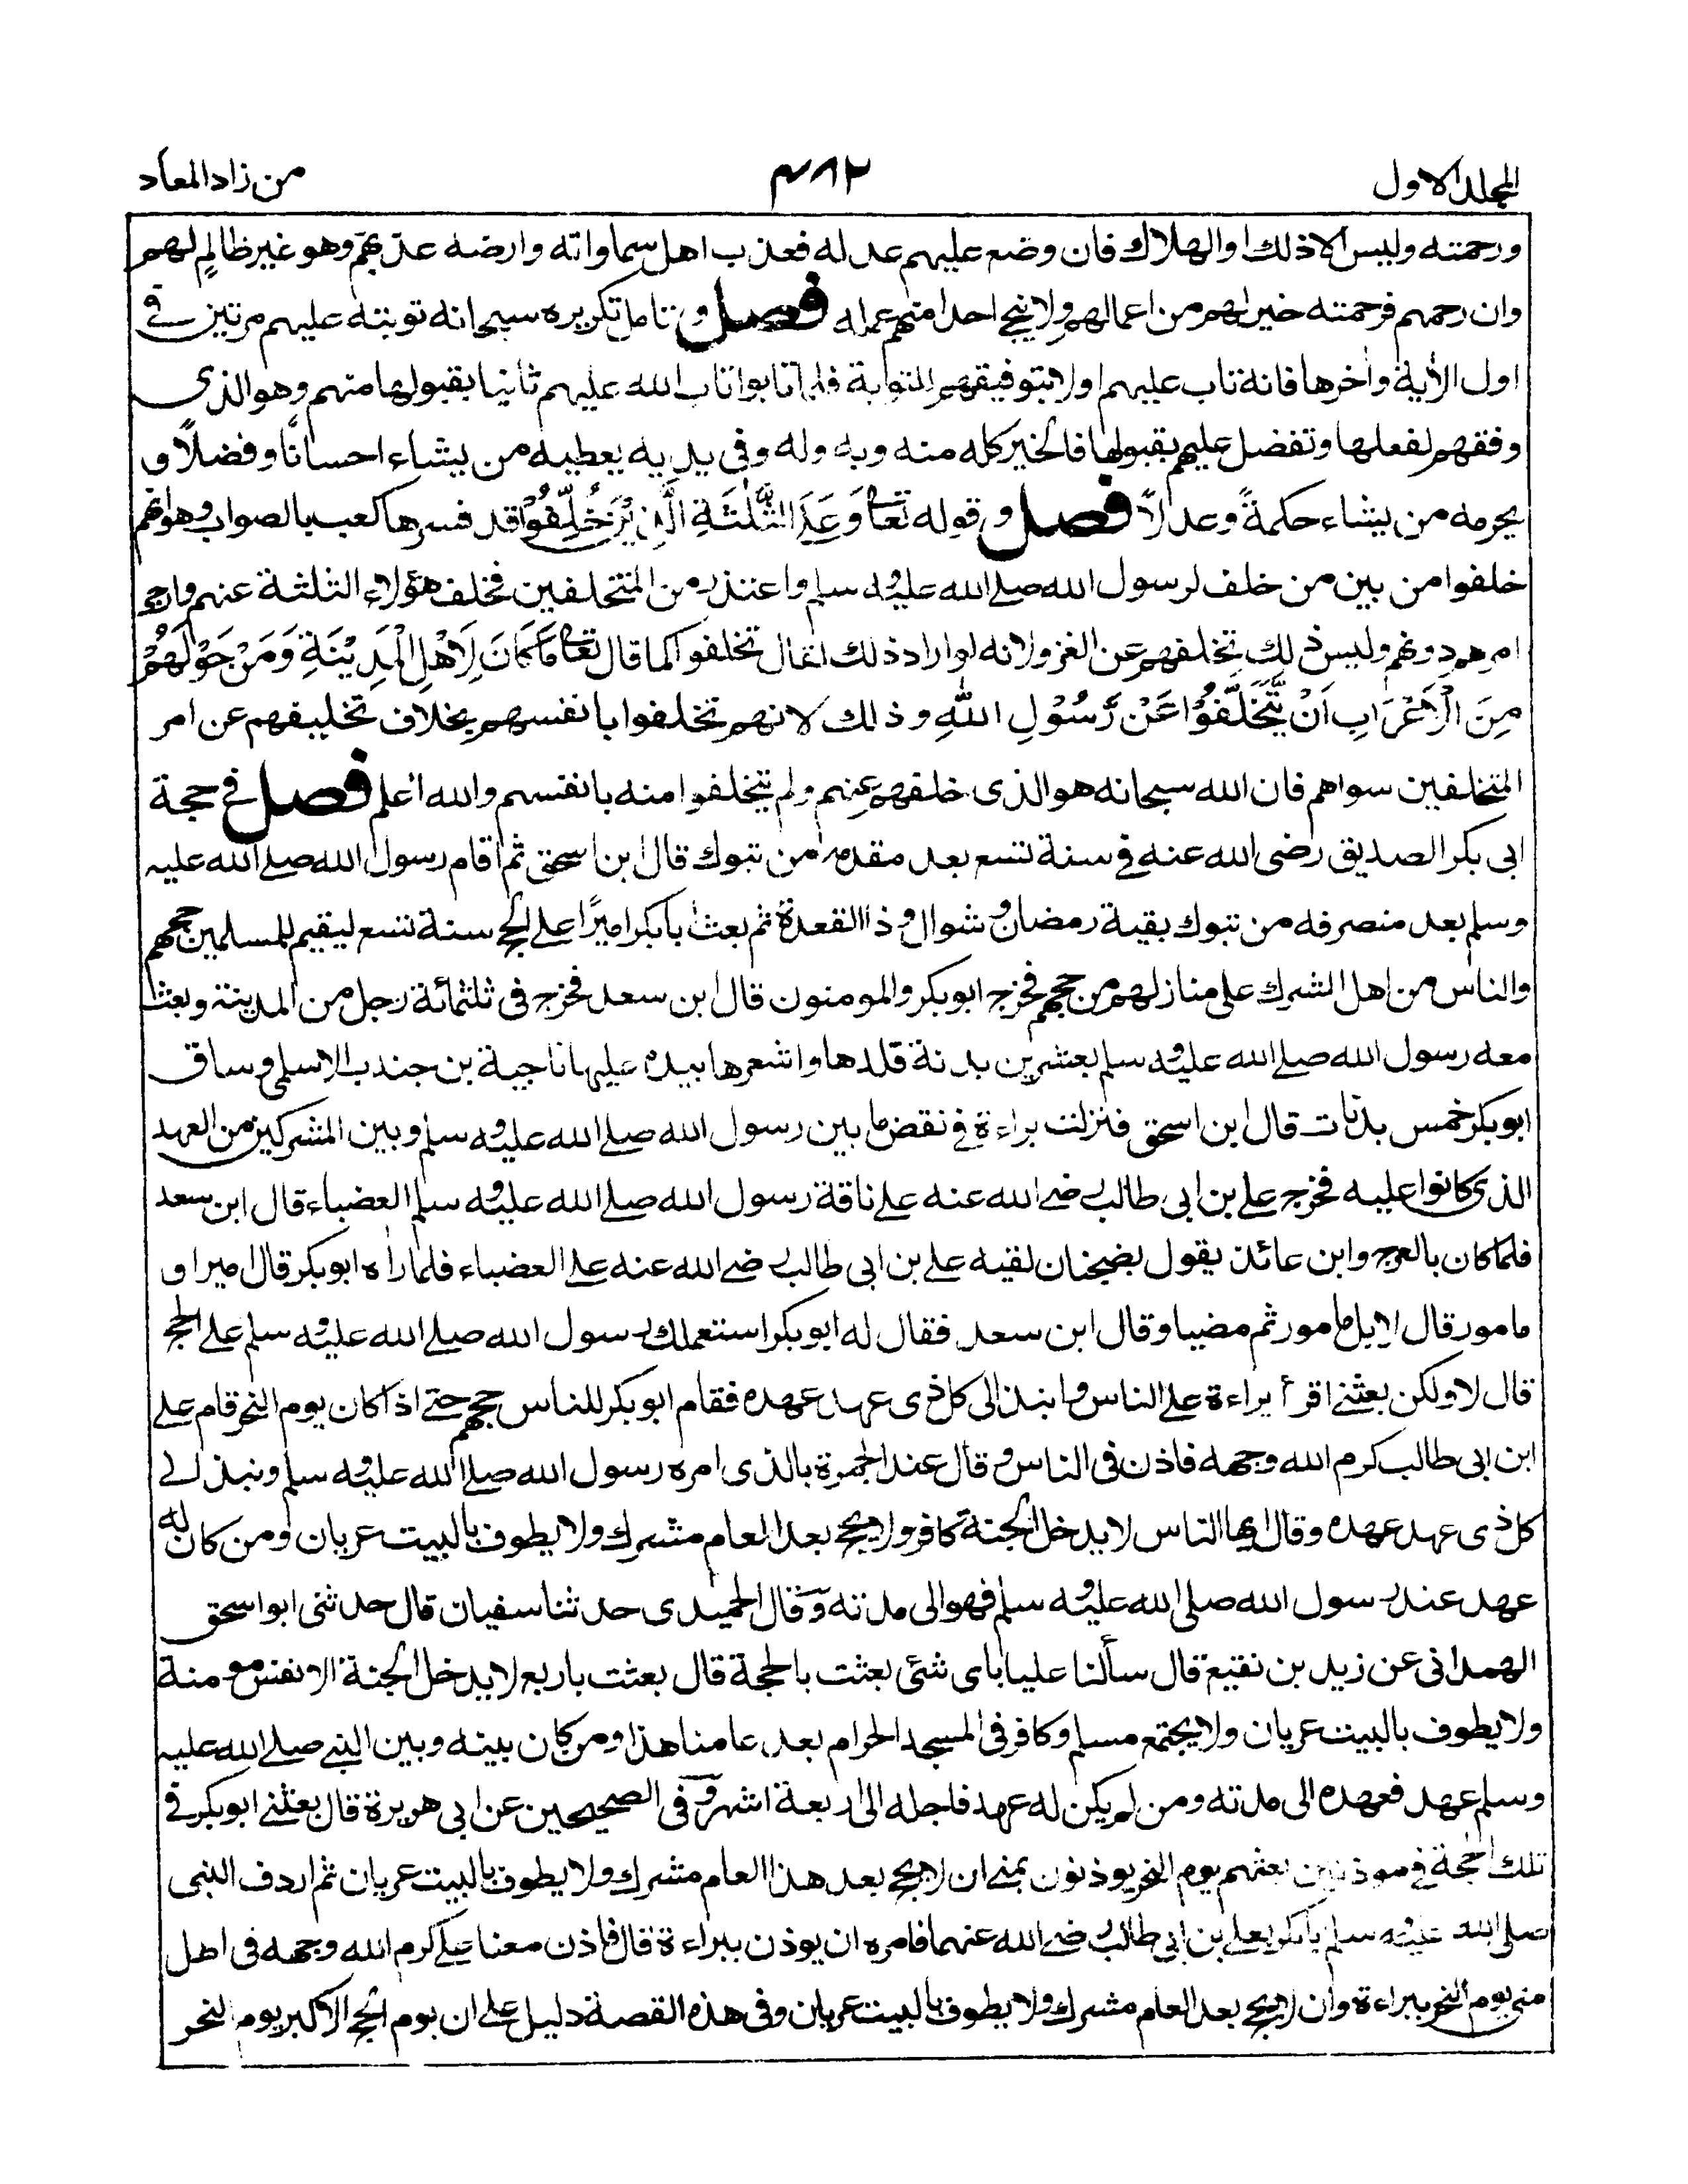 المجلد الاول
۴۸۲
من زاد المعاد
ورحمته وليس الا ذلك او الهلاك فان وضع عليهم عدله فعذب اهل سماواته وارضه عذبهم وهو غير ظالم لهم
وان رحمهم فرحمته خير لهم من اعمالهم ولا ينجي احدا منهم عمله فصل وتامل تكريره سبحانه توبته عليهم مرتين في
اول الأية وأخرها فانه تاب عليهم اولا بتوفيقهم للتوبة فلما تابوا تاب الله عليهم ثانيا بقبولها منهم وهو الذى
وفقهم لفعلها وتفضل عليهم بقبولها فالخير كله منه وبه وله وفى يديه يعطيه من يشاء احسانًا وفضلاً و
يحرمه من يشاء حكمةً وعدلاً فصل وقوله تعالى وَعَلَى الثَّلٰثَةِ الَّذِيْنَ خُلِّفُوْا قد فسرها كعب بالصواب وهو انهم
خلفوا من بين من خلف لرسول الله صلى الله عليه وسلم واعتذر من المتخلفين فخلف هؤلاء الثلثة عنهم وارجى
امرهم دونهم وليس ذلك تخلفهم عن الغزو لانه لو اراد ذلك لقال تخلفوا كما قال تعالى مَا كَانَ لِاَهْلِ الْمَدِيْنَةِ وَمَنْ حَوْلَهُمْ
مِنَ الْاَعْرَابِ اَنْ يَّتَخَلَّفُوْا عَنْ رَّسُوْلِ اللّٰهِ وذلك لانهم تخلفوا بانفسهم بخلاف تخليفهم عن امر
المتخلفين سواهم فان الله سبحانه هو الذى خلفهم عنهم ولم يتخلفوا منه بانفسهم والله اعلم فصل في حجة
ابى بكر الصديق رضى الله عنه في سنة تسع بعد مقدمه من تبوك قال ابن اسحق ثم اقام رسول الله صلى الله عليه
وسلم بعد منصرفه من تبوك بقية رمضان وشوال وذا القعدة ثم بعث ابا بكر اميرًا على الحج سنة تسع ليقيم للمسلمين حجهم
والناس من اهل الشرك على منازلهم من حجهم فخرج ابو بكر والمومنون قال ابن سعد فخرج فى ثلثمائة رجل من المدينة وبعث
معه رسول الله صلى الله عليه وسلم بعشرين بدنة قلدها واشعرها بيده عليها ناجية بن جندب الاسلمى وساق
ابو بكر خمس بدنات قال ابن اسحق فنزلت براءة في نقض ما بين رسول الله صلى الله عليه وسلم وبين المشركين من العهد
الذى كانوا عليه فخرج على بن ابى طالب رضى الله عنه على ناقة رسول الله صلى الله عليه وسلم العضباء قال ابن سعد
فلما كان بالعرج وابن عائذ يقول بضجنان لقيه على بن ابى طالب رضى الله عنه على العضباء فلما رأه ابو بكر قال امير او
مامور قال لا بل مامور ثم مضيا وقال ابن سعد فقال له ابو بكر استعملك رسول الله صلى الله عليه وسلم على الحج
قال لا ولكن بعثنى اقرأ براءة على الناس وانبذ الى كل ذى عهد عهده فقام ابو بكر للناس حجهم حتى اذا كان يوم النحر قام على
ابن ابى طالب كرم الله وجهه فاذن فى الناس وقال عند الجمرة بالذى امره رسول الله صلى الله عليه وسلم ونبذ الى
كل ذى عهد عهده وقال ايها الناس لا يدخل الجنة كافر ولا يحج بعد العام مشرك ولا يطوف بالبيت عريان ومن كان له
عهد عند رسول الله صلى الله عليه وسلم فهو الى مدته وقال الحميدى حدثنا سفيان قال حدثنى ابو اسحق
الهمدانى عن زيد بن نقيع قال سألنا عليا باى شئ بعثت بالحجة قال بعثت باربع لا يدخل الجنة الا نفس مومنة
ولا يطوف بالبيت عريان ولا يجتمع مسلم وكافر فى المسجد الحرام بعد عامنا هذا ومن كان بينه وبين النبى صلى الله عليه
وسلم عهد فعهده الى مدته ومن لم يكن له عهد فاجله الى اربعة اشهر وفى الصحيحين عن ابى هريرة قال بعثنى ابو بكر في
تلك الحجة في موذنين بعثهم يوم النحر يوذنون بمنى ان لا يحج بعد هذا العام مشرك ولا يطوف بالبيت عريان ثم اردف النبى
صلى الله عليه وسلم ابا بكر بعلى بن ابى طالب رضى الله عنهما فامره ان يوذن ببراءة قال فاذن معنا على كرم الله وجهه فى اهل
منى يوم النحر ببراءة وان لا يحج بعد العام مشرك ولا يطوف بالبيت عريان وفى هذه القصة دليل على ان يوم الحج الاكبر يوم النحر